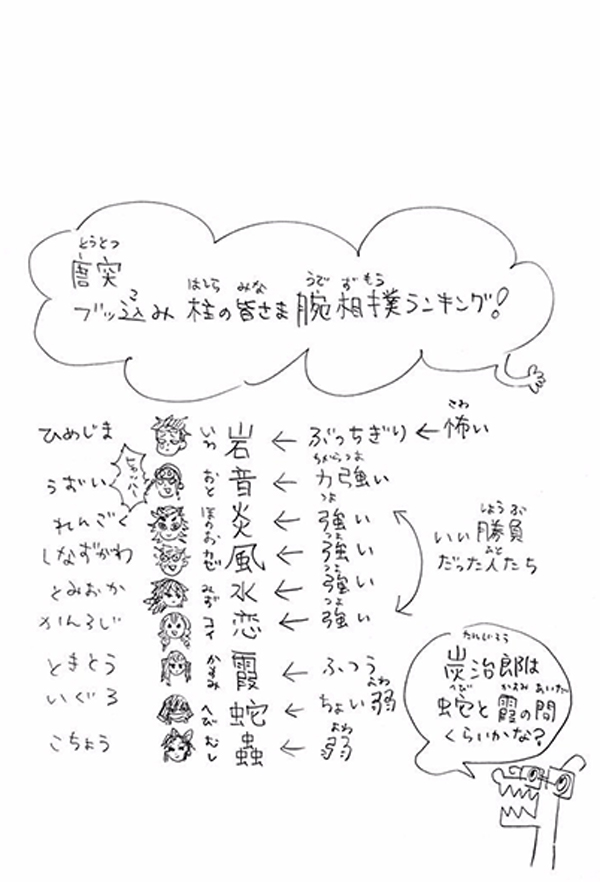 とうとつ
唐突
ブッ込み 柱の皆さま 腕相撲ランキング!
こ はしら みな うで ずもう
ひめじま いわ 岩 ← ぶっちぎり ← 怖い
さわ
うずい おと 音 ← 力強い
ちからづよ
れんごく ほのお 炎 ← 強い
つよ
しなずがわ カゼ 風 ← 強い
つよ
とみおか みず 水 ← 強い
つよ
かんろじ コイ 恋 ← 強い
つよ
ときとう かすみ 霞 ← ふつう
いぐろ へび 蛇 ← ちょい弱
よわ
こちょう むし 蟲 ← 弱
よわ
しょうぶ
いい勝負
ひと
だった人たち
たんじろう
炭治郎は
へび かすみ あいだ
蛇と霞の間
くらいかな?